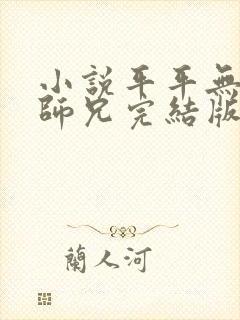 小說平平無
師兄完結版
蘭人河